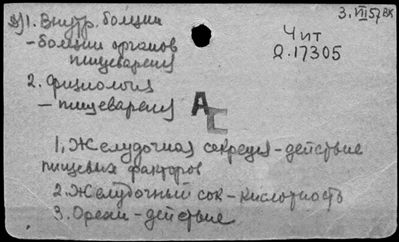 1. Внутр. болезни
- болезни органов
пищеварения
2. Физиология
- пищеварения
3. VII 57
Чит
Д.17305
АС
1. Желудочная секреция - действие
пищевых факторов
2. Желудочный сок - кислотность
3. Орехи - действие